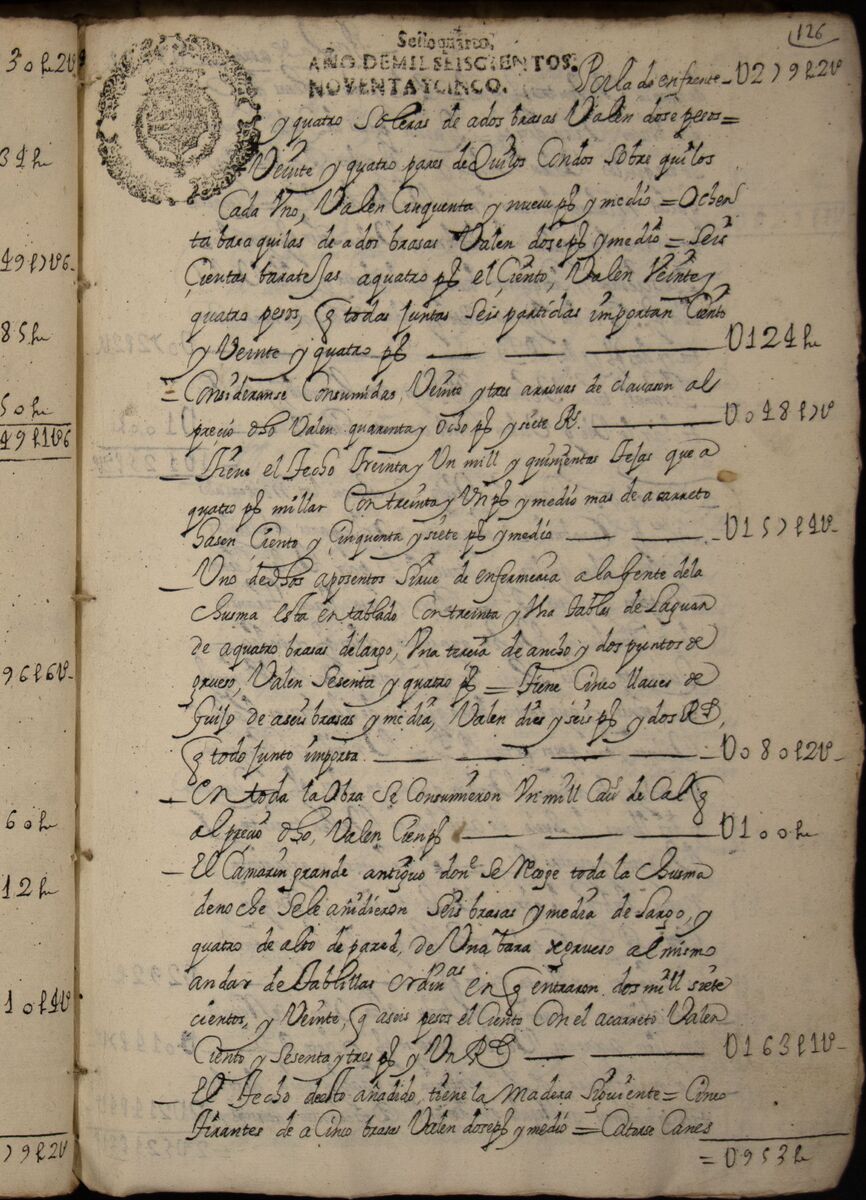 126
Sello quarto,
AÑO DE MIL SEISCIENTOS.
NOVENTA Y CINCO.
Por la de enfrente — U279p2U
y quatro soleras de ados brasas Valen dose pesos =
Veinte y quatro pares de Quilos Con dos sobre quilos
Cada Vno, Valen Cinquenta y nueve ps y medio = Ochen
ta baraquilas de ados brasas Valen dose ps y medio = Seis
Cientas taratesas a quatro ps el Ciento, Valen Veinte y
quatro pesos, q todas juntas seis partidas importan Ciento
y Veinte y quatro ps — — — U124p
= Consideranse Consumidas, Veinte y tres arrovas de clavason al
precio dho Valen quarenta y Ocho ps y siete Rs. — U048p7U
— Tiene el techo treinta y Un mill y quinientas tejas que a
quatro ps millar Con treinta y Un ps y medio mas de acarreto
hasen Ciento y Cinquenta y siete ps y medio — — U157p4U
— Uno de dhos aposentos sirve de enfermeria a la gente dela
chusma esta entablado Con treinta y Vna tablas de Laguan
de aquatro brasas de largo, Vna tercia de ancho y dos puntos de
grueso, Valen Sesenta y quatro ps = Tiene Cinco llaves de
Guijo de aseis brasas y media, Valen dies y seis ps y dos Rs,
q todo junto importa — — — — U080p2U
— En toda la Obra se Consumieron Vn mill Caus de Cal q
al precio dho, Valen Cien ps — — — U100p
— El Camarin grande antiguo donde se recoge toda la chusma
de noche se le añidieron seis brasas y media de largo, y
quatro de alto de pared, de Una bara de grueso al mismo
andar de tablillas ordinas en q entraron dos mill siete
cientos, y Veinte, q aseis pesos el Ciento Con el acarreto Valen
Ciento y Sesenta y tres ps y Un Rl — — U163p1U
— El techo desto añadido, tiene la madera siguiente = Cinco
tirantes de a Cinco brasas Valen dose ps y medio = Catorse Canes
= U953p
30p2U
34p
85p
50p
96p6U
60p
12p
10p4U
79p2U